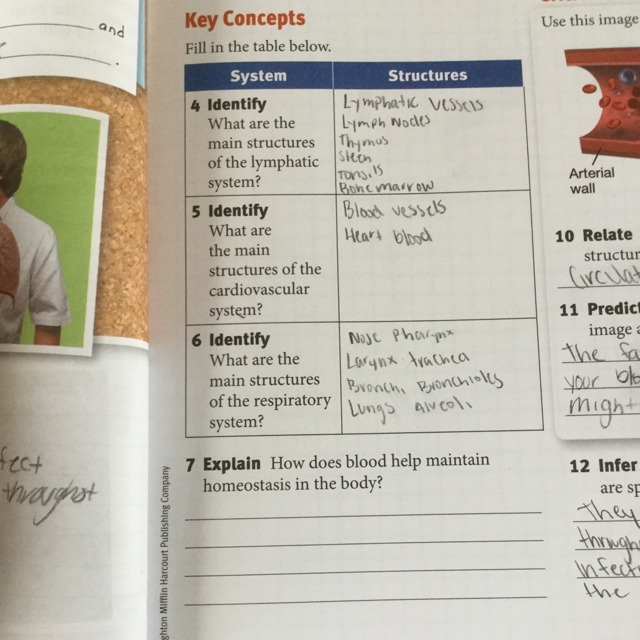 and
Key Concepts
Fill in the table below.
System
Structures
4 Identify
What are the
main structures
of the lymphatic
system?
Lymphatic Vessels
Lymph Nodes
Thymus
Sleen
Tonsils
Bone marrow
5 Identify
What are
the main
structures of the
cardiovascular
system?
Blood vessels
Heart blood
6 Identify
What are the
main structures
of the respiratory
system?
Nose Pharynx
Larynx trachea
Bronchi Bronchioles
Lungs alveoli
7 Explain How does blood help maintain
homeostasis in the body?
throughout
Mifflin Harcourt Publishing Company
Use this image
Arterial
wall
10 Relate
11 Predict
image
the
your
might
12 Infer
are
They
the